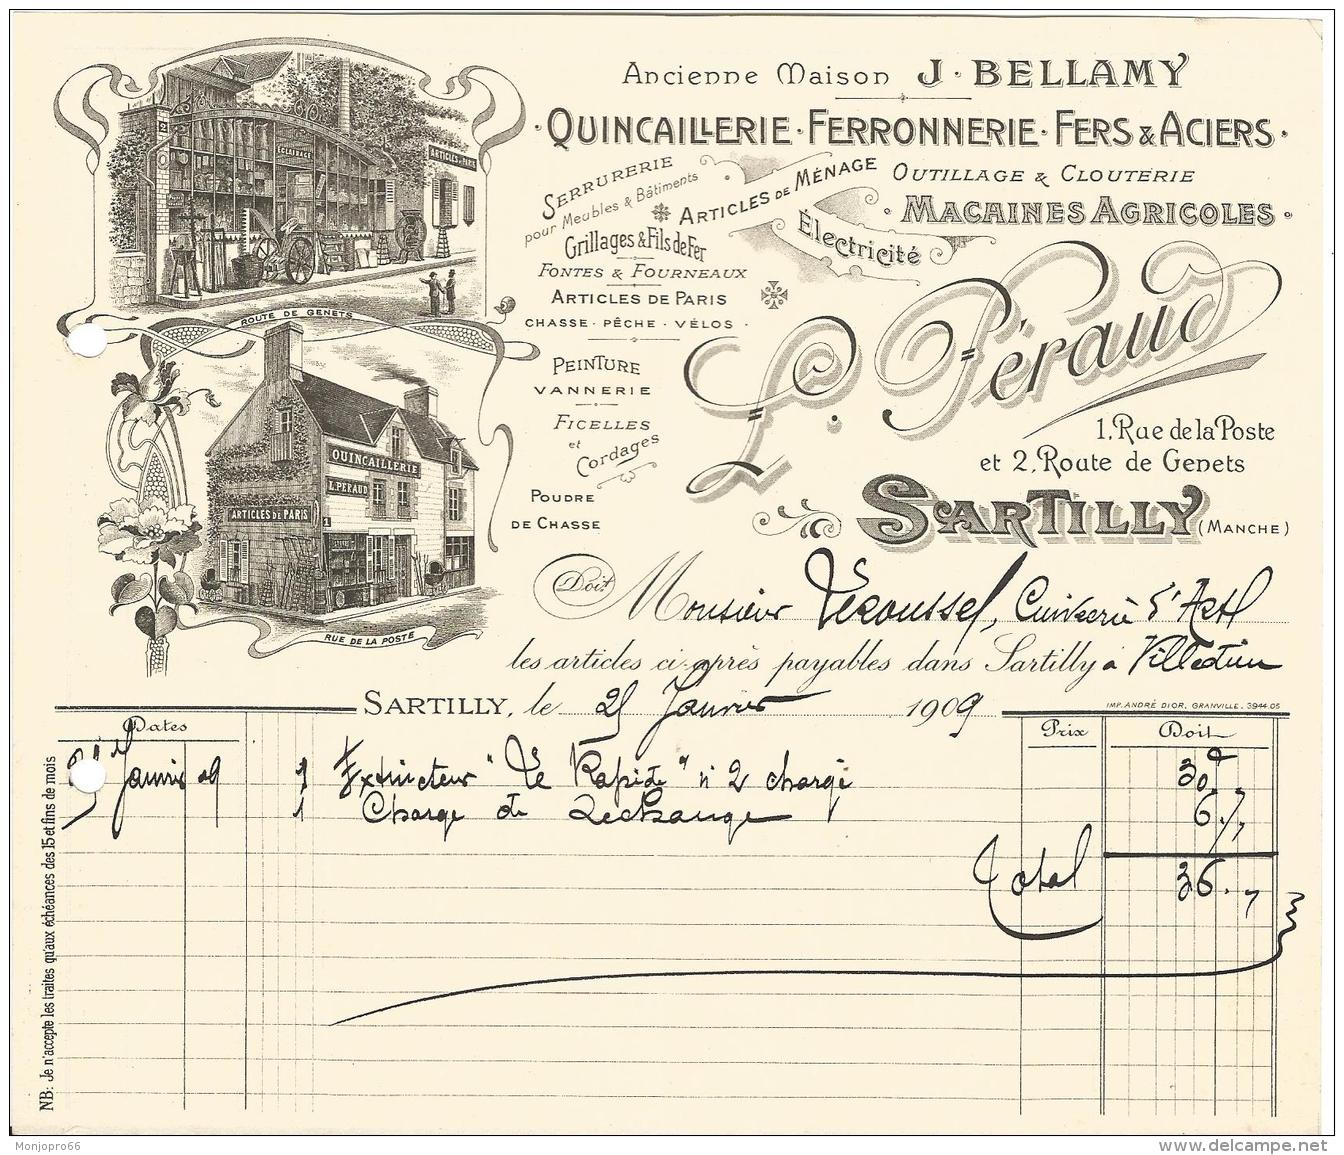 Ancienne Maison J. BELLAMY
QUINCAILLERIE · FERRONNERIE · FERS & ACIERS
SERRURERIE
pour Meubles & Bâtiments
Grillages & Fils de Fer
FONTES & FOURNEAUX
ARTICLES DE PARIS
CHASSE · PÊCHE · VÉLOS
PEINTURE
VANNERIE
FICELLES
et
Cordages
POUDRE
DE CHASSE
ARTICLES DE MÉNAGE
Électricité
OUTILLAGE & CLOUTERIE
MACHINES AGRICOLES
L. Péraud
1, Rue de la Poste
et 2, Route de Genets
SARTILLY (MANCHE)
2
ÉCLAIRAGE
ARTICLES DE PARIS
ROUTE DE GENETS
QUINCAILLERIE
L. PERAUD
ARTICLES DE PARIS
1
RUE DE LA POSTE
Doit Monsieur
les articles ci-après payables dans Sartilly à Villedieu
SARTILLY, le 25 Janvier 1909
IMP. ANDRÉ DIOR, GRANVILLE. 3944.05
Dates Prix Doit
Janvier 09 1 Extincteur "Le Rapide" n° 2 chargé 30
1 Charge de Rechange 6
Total 36
NB: Je n'accepte les traites qu'aux échéances des 15 et fins de mois
Monjopro66
www.delcampe.net